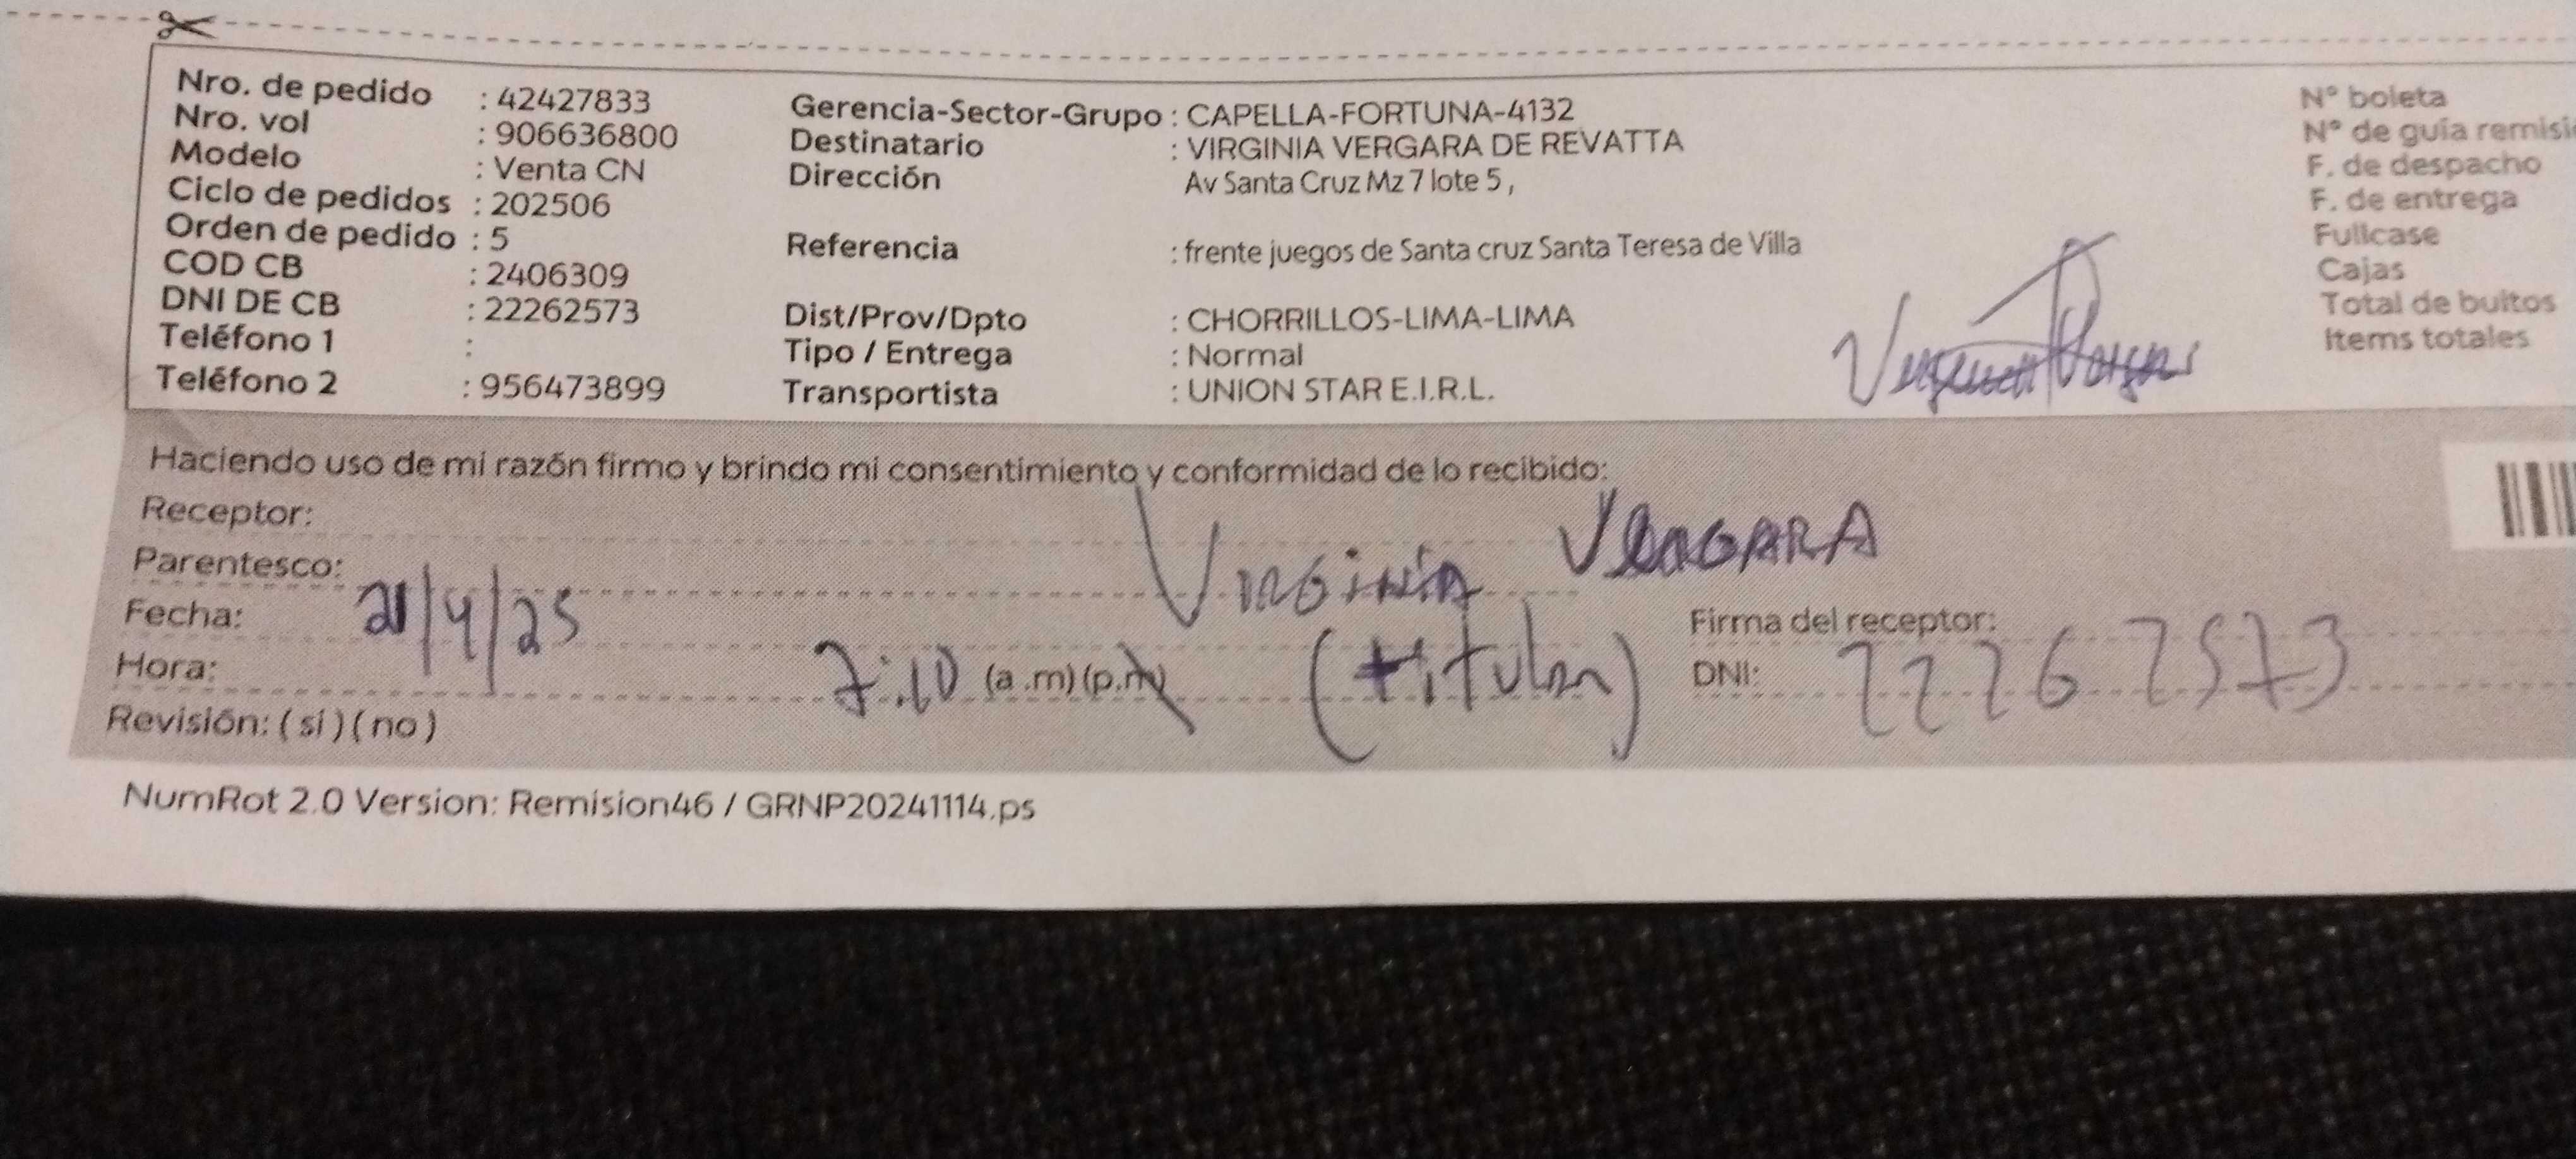 Nro. de pedido : 42427833
Nro. vol : 906636800
Modelo : Venta CN
Ciclo de pedidos : 202506
Orden de pedido : 5
COD CB : 2406309
DNI DE CB : 22262573
Teléfono 1 :
Teléfono 2 : 956473899
Gerencia-Sector-Grupo : CAPELLA-FORTUNA-4132
Destinatario : VIRGINIA VERGARA DE REVATTA
Dirección Av Santa Cruz Mz 7 lote 5 ,
Referencia : frente juegos de Santa cruz Santa Teresa de Villa
Dist/Prov/Dpto : CHORRILLOS-LIMA-LIMA
Tipo / Entrega : Normal
Transportista : UNION STAR E.I.R.L.
N° boleta
N° de guía
F. de despacho
F. de entrega
Fullcase
Cajas
Total de bultos
Items totales
Haciendo uso de mi razón firmo y brindo mi consentimiento y conformidad de lo recibido:
Receptor: VIRGINIA VERGARA
Parentesco:
Fecha: 21/4/25
Hora: 7:10 (a .m) (p.m) (titular)
Firma del receptor:
DNI: 22262573
Revisión: ( si ) ( no )
NumRot 2.0 Version: Remision46 / GRNP20241114.ps